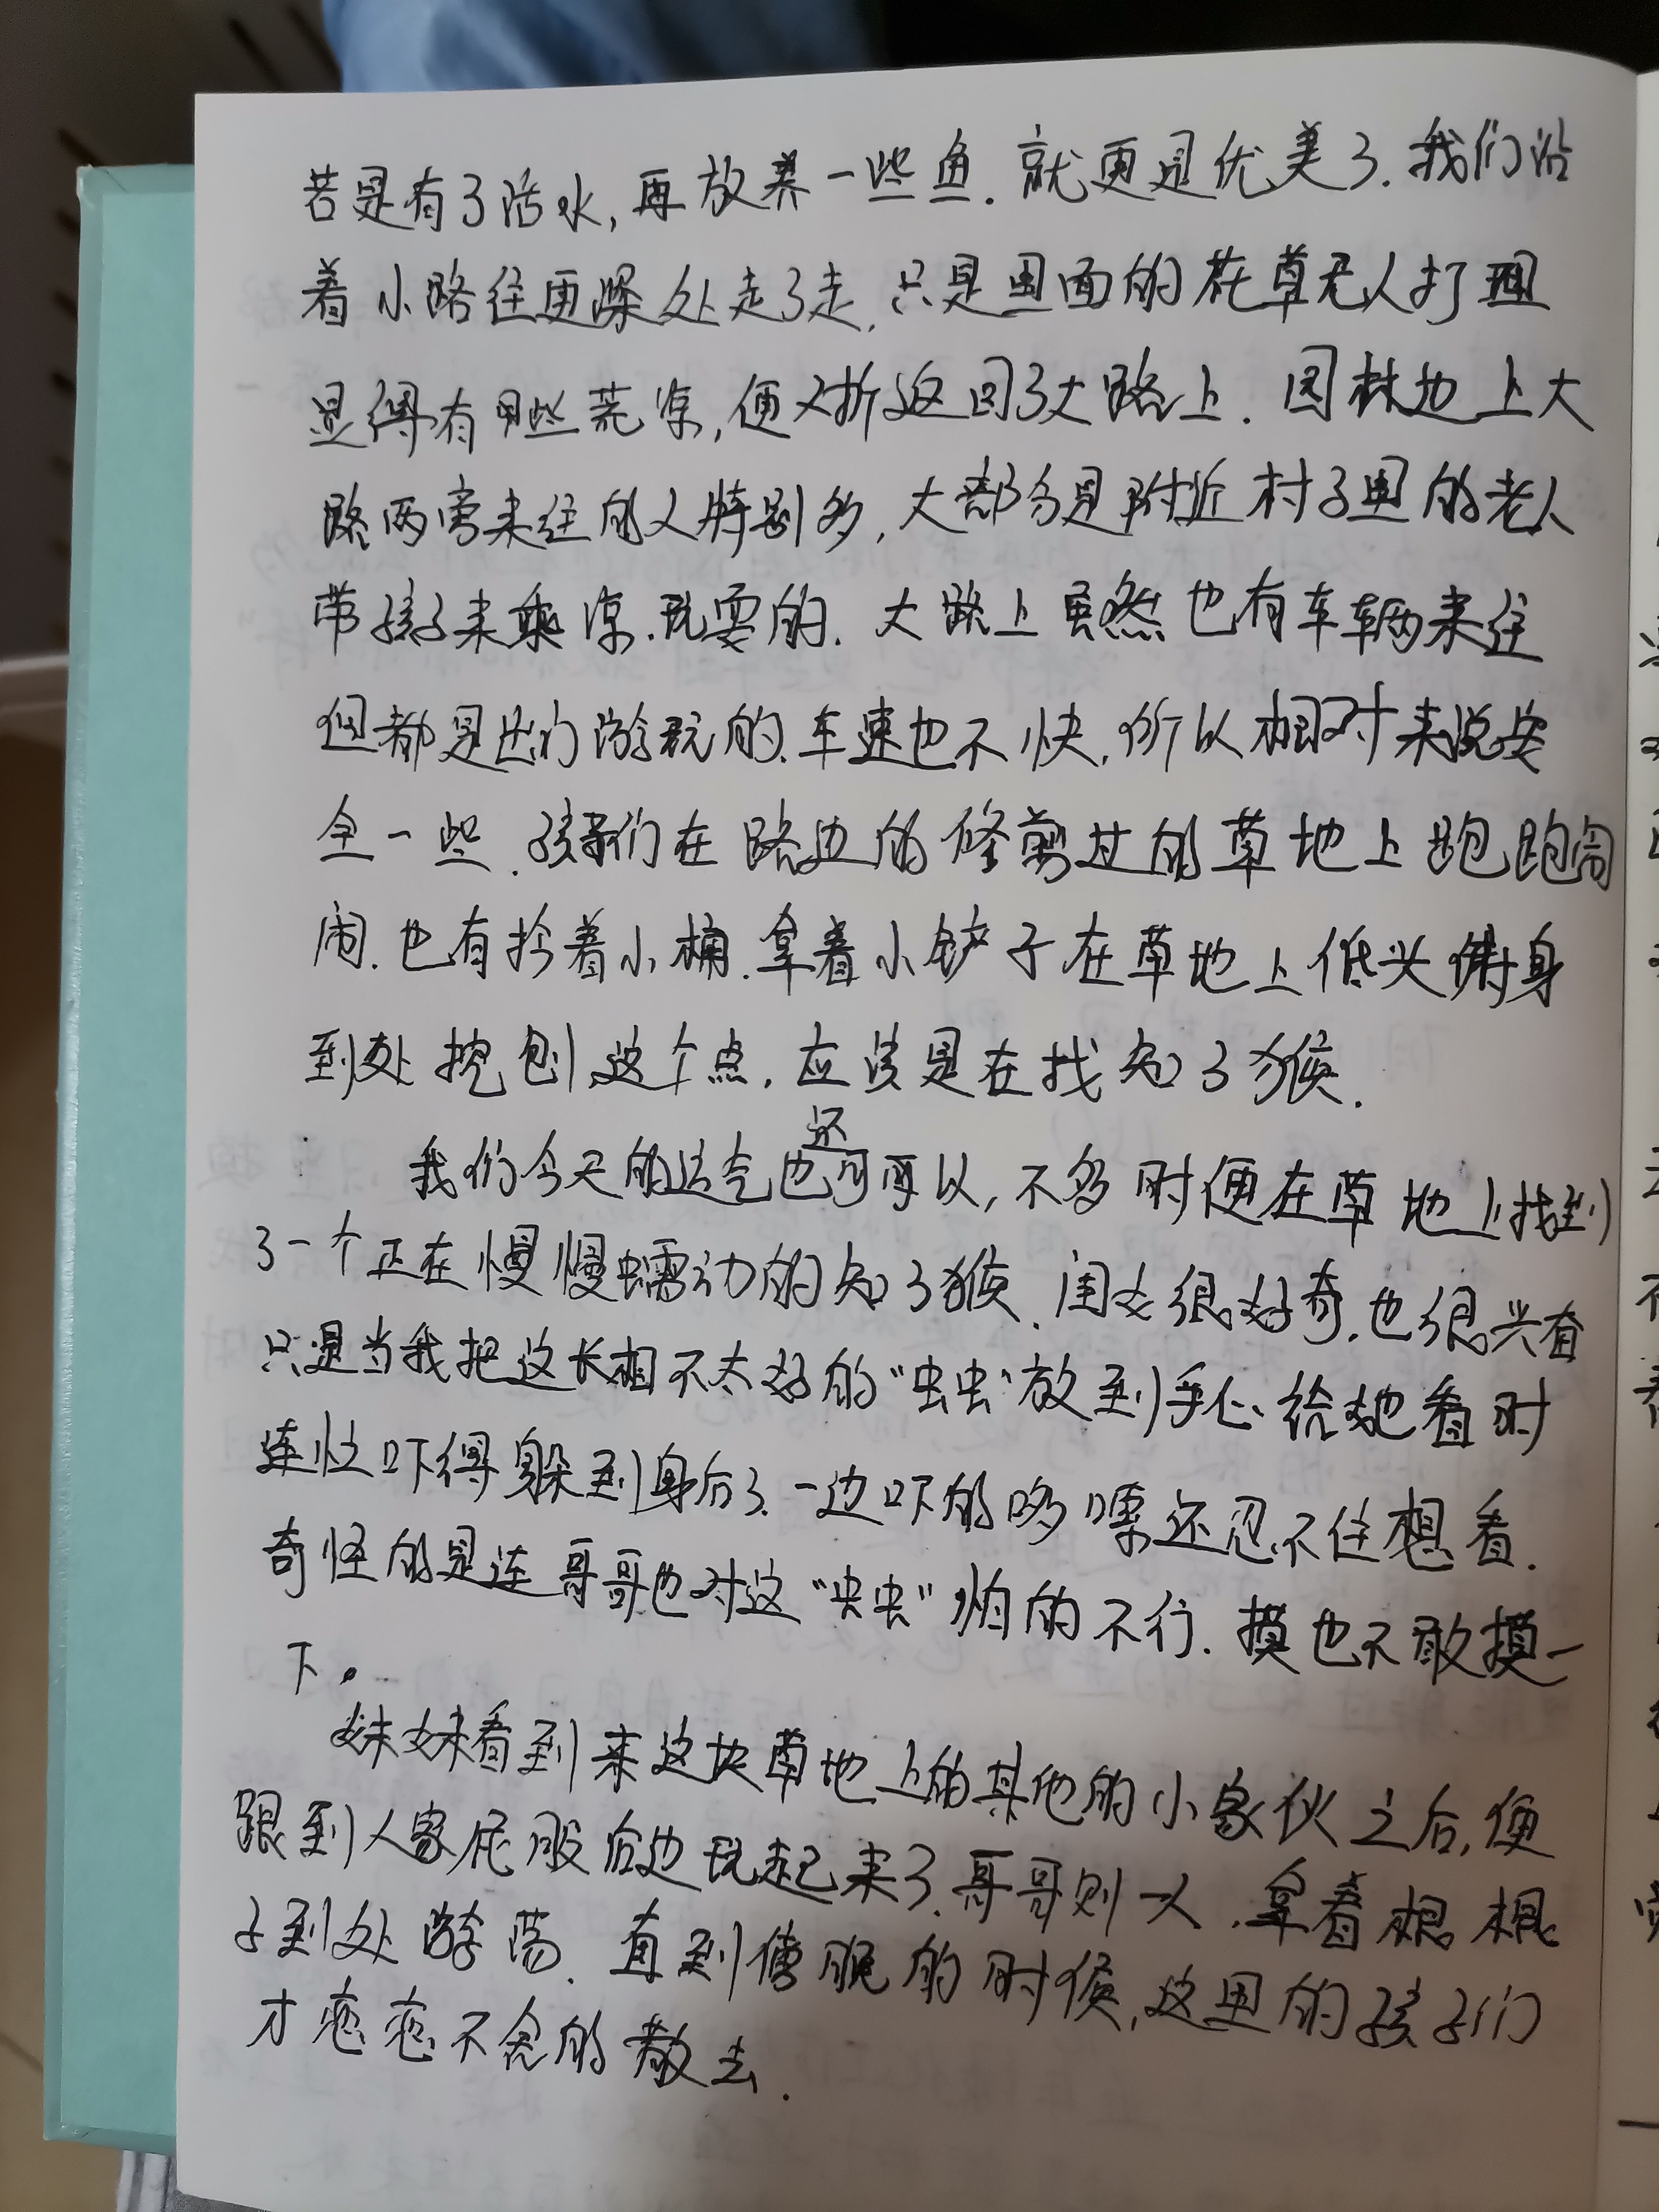 若是有了活水,再放养一些鱼.就更是优美了.我们沿
着小路往更深处走了走,只是里面的花草无人打理
显得有些荒凉,便又折返回了大路上.园林边上大
路两旁来往的人特别多,大部分是附近村子里的老人
带孩子来乘凉.玩耍的.大路上虽然也有车辆来往
但都是出门游玩的.车速也不快,所以相对来说安
全一些.孩子们在路边的修剪过的草地上跑跑闹
闹.也有拎着小桶.拿着小铲子在草地上低头俯身
到处挖刨,这个点,应该是在找知了猴.
我们今天的运气也还可以,不多时便在草地上找到
了一个正在慢慢蠕动的知了猴.闺女很好奇.也很兴奋
只是当我把这长相不太好的“虫虫”放到手心给她看时
连忙吓得躲到身后了.一边吓的哆嗦还忍不住想看.
奇怪的是连哥哥也对这“虫虫”怕的不行.摸也不敢摸一
下。
妹妹看到来这块草地上的其他的小家伙之后,便
跟到人家屁股后边玩起来了.哥哥则一人.拿着根棍
子到处游荡.直到傍晚的时候,这里的孩子们
才恋恋不舍的散去.